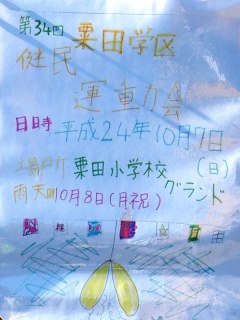 第34回
粟田学区
健民
運動会
日時 平成24年10月7日
(日)
場所 粟田小学校
グランド
雨天時10月8日(月祝)